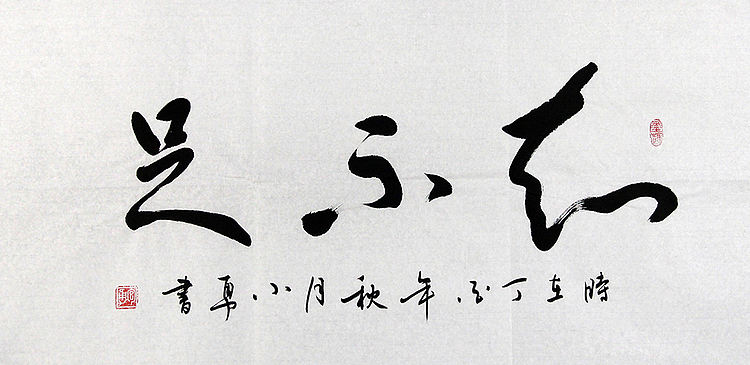 知不足
時在丁酉年秋月小勇書